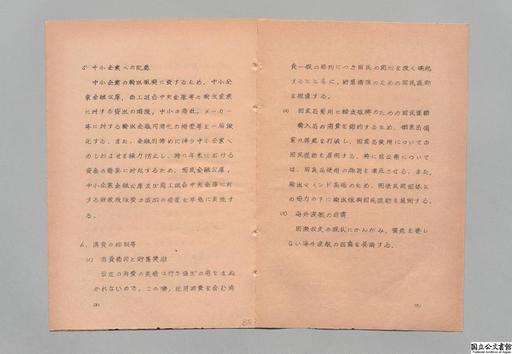 5 中小企業への配慮
中小企業の輸出振興に資するため、中小企
業金融公庫、商工組合中央金庫等の輸出産業
に対する貸出の増強、中小の商社、メーカー
等に対する輸出金融円滑化の措置等を一層強
化する。また、金融引締めに伴う中小企業へ
のしわよせを極力防止し、特に年末における
資金の需要に対処するため、国民金融公庫、
中小企業金融公庫及び商工組合中央金庫に対
する財政投融資の追加の措置を早急に実施す
る。
6. 消費の抑制等
(1) 消費節約と貯蓄奨励
最近の消費の実情は行き過ぎの感をまぬ
かれないので、この際、社用消費を含む消
費一般の節約につき国民の関心を強く喚起
するとともに、貯蓄増強のための国民運動
を推進する。
(2) 国産品愛用と輸出振興のための国民運動
輸入品の消費を節約するため、舶来品偏
重の弊風を打破し、国産品愛用についての
国民運動を展開する。特に官公需について
は、国産品使用の励行を徹底させる。また、
輸出マインド高揚のため、関係民間団体等
の協力の下に輸出振興国民運動を展開する。
(3) 海外渡航の自粛
国際収支の現状にかんがみ、緊急を要し
ない海外渡航の自粛を要請する。
85
国立公文書館
National Archives of Japan